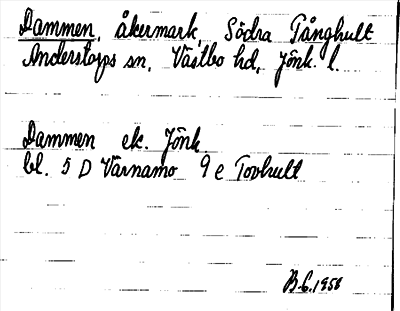 Dammen, åkermark, Södra Gånghult
Anderstorps sn, Västbo hd, Jönk. l.
Dammen ek. Jönk
bl. 5 D Värnamo 9 e Tovhult
B.G. 1958